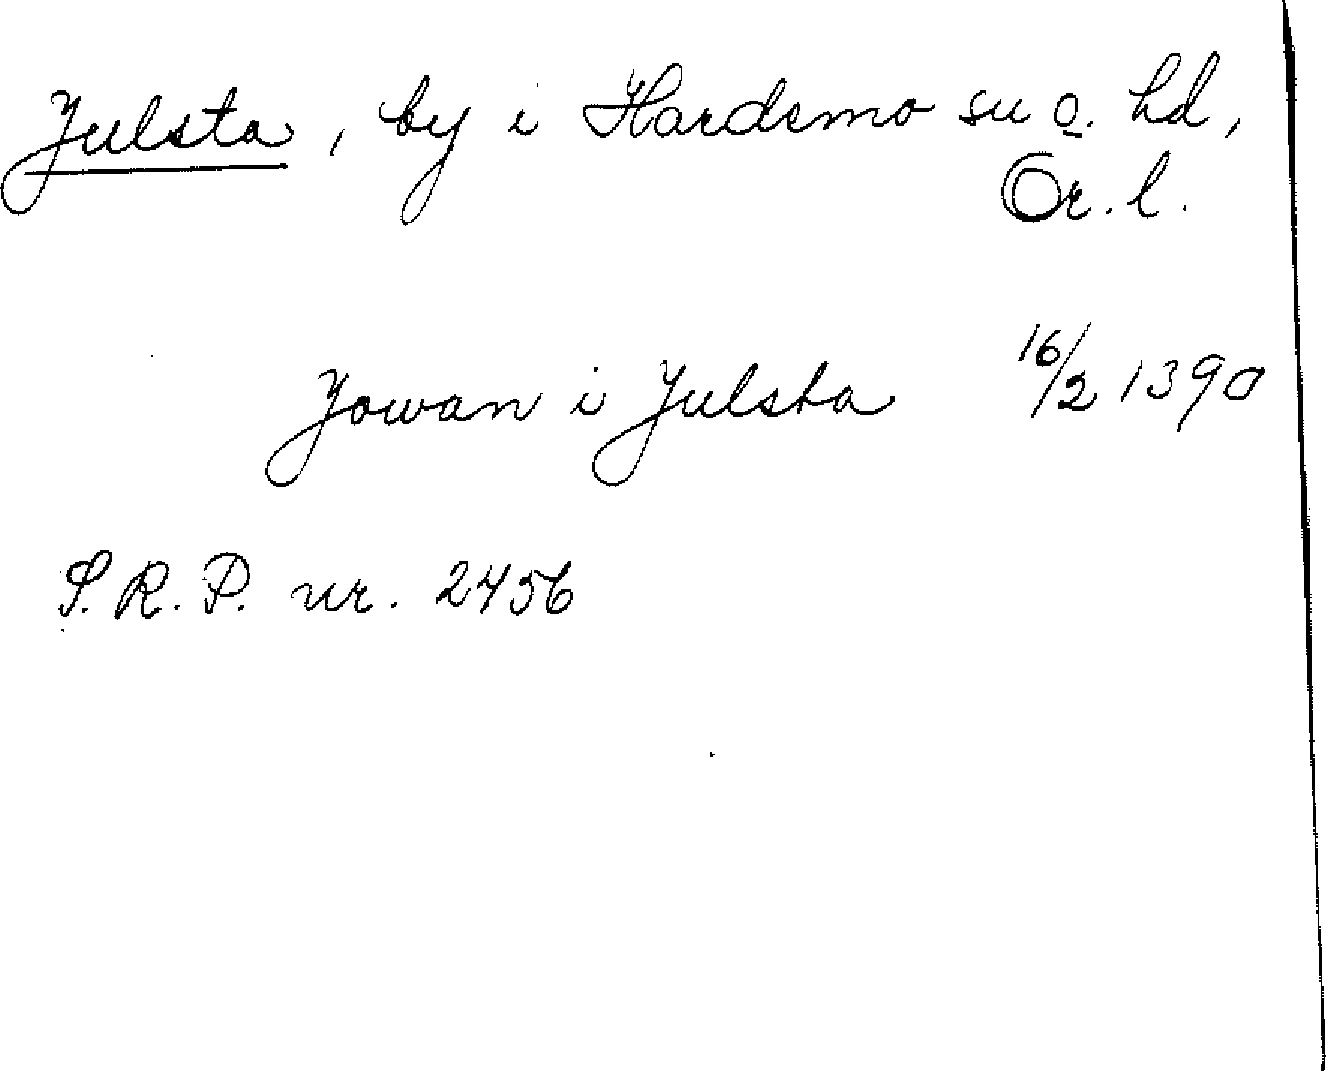 Julsta, by i Hardemo sn o. hd,
Ör. l.
Jowan i Julsta 16/2 1390
S. R. P. nr. 2456